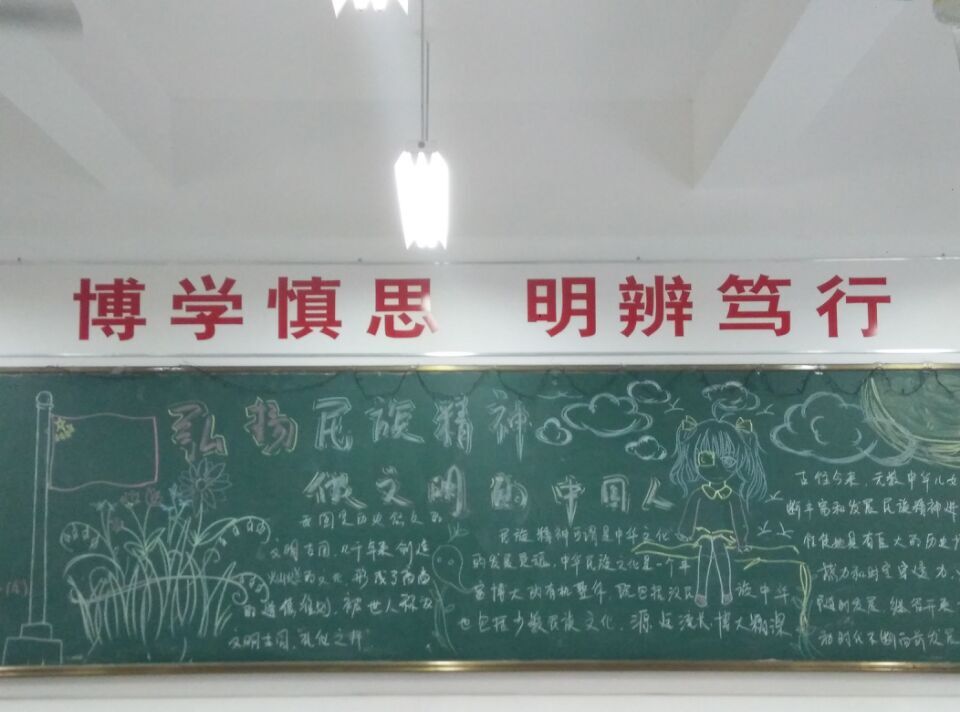 博学慎思 明辨笃行
弘扬民族精神
做文明的中国人
我国是历史悠久的
文明古国,几千年来创造
灿烂的文化,形成了高尚
的道德准则,被世人称为
文明古国,礼仪之邦
民族精神可谓是中华文化
的发展灵魂。中华民族文化是一个丰
富博大的有机整体,既包括汉民族中华
也包括少数民族文化。源远流长博大精深
古往今来,无数中华儿女
断丰富和发展民族精神
具有巨大的历史
力和时空穿透力
的发展,继
和时代不断向前发展